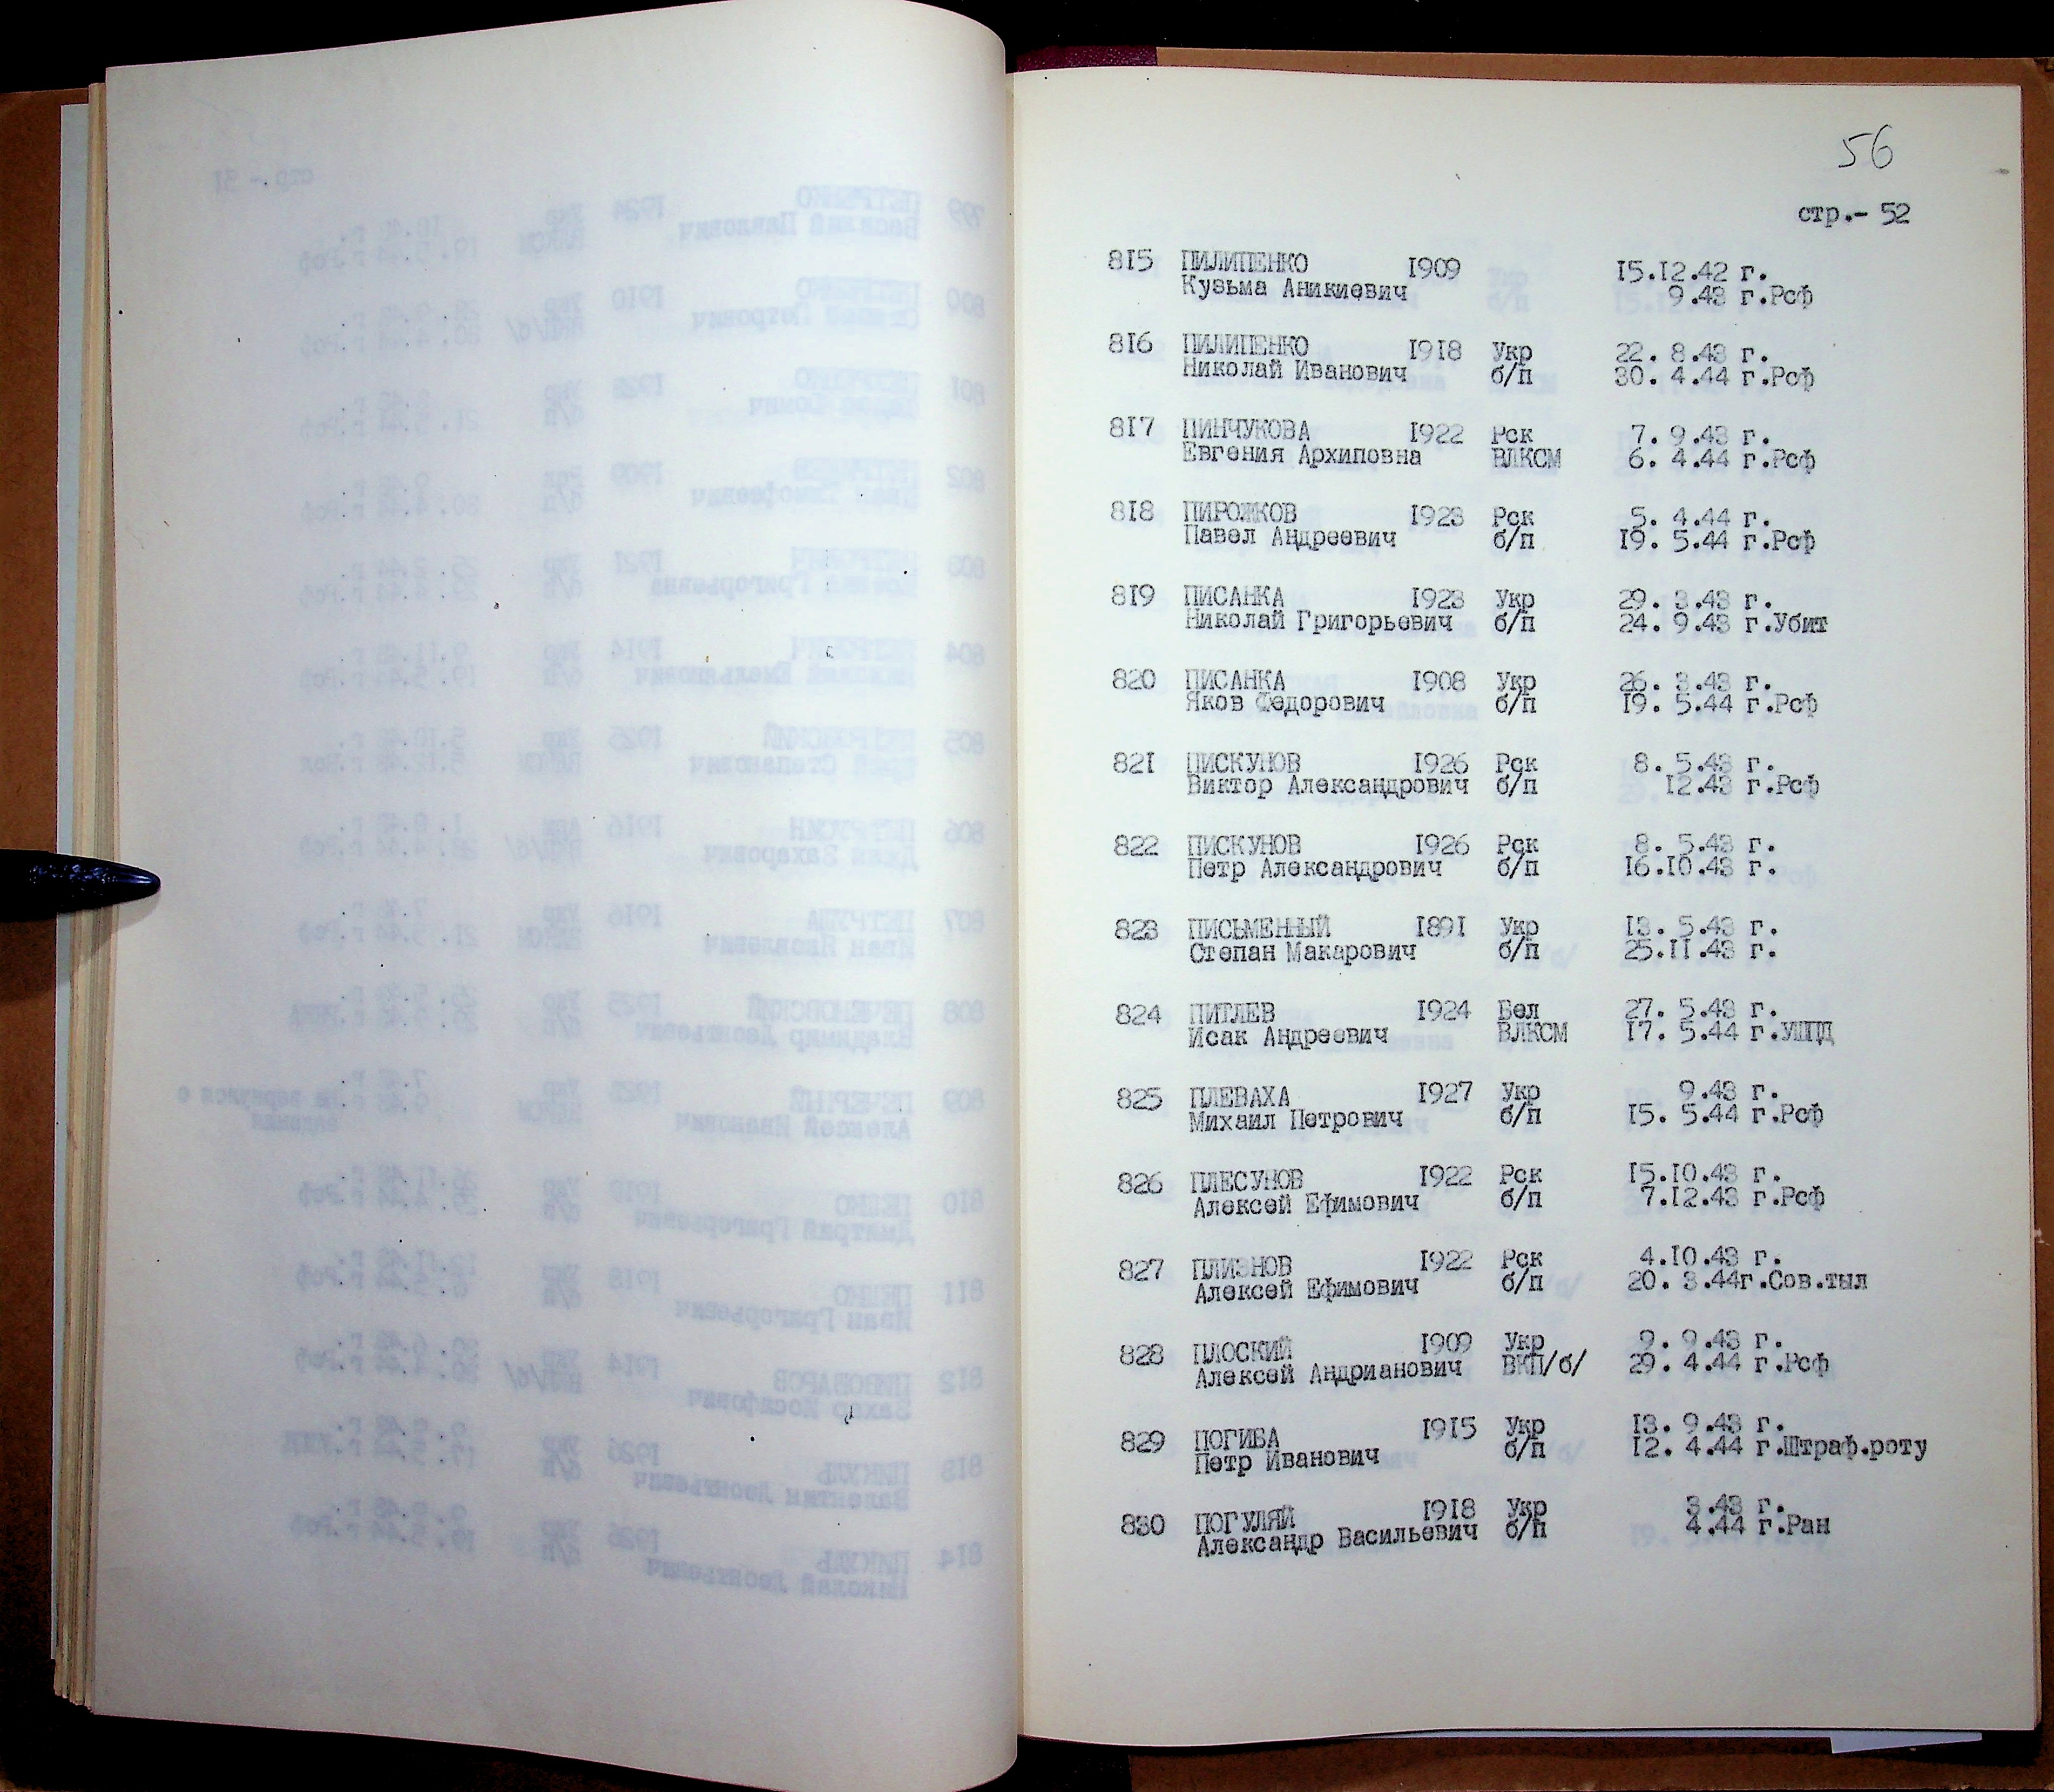 56
стр.- 52
815 ПИЛИПЕНКО 1909 15.12.42 г.
Кузьма Аникиевич 9.43 г.Рсф
816 ПИЛИПЕНКО 1918 Укр 22. 8.43 г.
Николай Иванович б/п 30. 4.44 г.Рсф
817 ПИНЧУКОВА 1922 Рск 7. 9.43 г.
Евгения Архиповна ВЛКСМ 6. 4.44 г.Рсф
818 ПИРОЖКОВ 1923 Рск 5. 4.44 г.
Павел Андреевич б/п 19. 5.44 г.Рсф
819 ПИСАНКА 1923 Укр 29. 3.43 г.
Николай Григорьевич б/п 24. 9.43 г.Убит
820 ПИСАНКА 1908 Укр 26. 3.43 г.
Яков Федорович б/п 19. 5.44 г.Рсф
821 ПИСКУНОВ 1926 Рск 8. 5.43 г.
Виктор Александрович б/п 12.43 г.Рсф
822 ПИСКУНОВ 1926 Рск 8. 5.43 г.
Петр Александрович б/п 16.10.43 г.
823 ПИСЬМЕННЫЙ 1891 Укр 13. 5.43 г.
Степан Макарович б/п 25.11.43 г.
824 ПИТЛЕВ 1924 Бел 27. 5.43 г.
Исак Андреевич ВЛКСМ 17. 5.44 г.УШПД
825 ПЛЕВАХА 1927 Укр 9.43 г.
Михаил Петрович б/п 15. 5.44 г.Рсф
826 ПЛЕСУНОВ 1922 Рск 15.10.43 г.
Алексей Ефимович б/п 7.12.43 г.Рсф
827 ПЛИЗНОВ 1922 Рск 4.10.43 г.
Алексей Ефимович б/п 20. 3.44г.Сов.тыл
828 ПЛОСКИЙ 1909 Укр 9. 9.43 г.
Алексей Андрианович ВКП/б/ 29. 4.44 г.Рсф
829 ПОГИБА 1915 Укр 13. 9.43 г.
Петр Иванович б/п 12. 4.44 г.Штраф.роту
830 ПОГУЛЯЙ 1918 Укр 3.43 г.
Александр Васильевич б/п 4.44 г.Ран